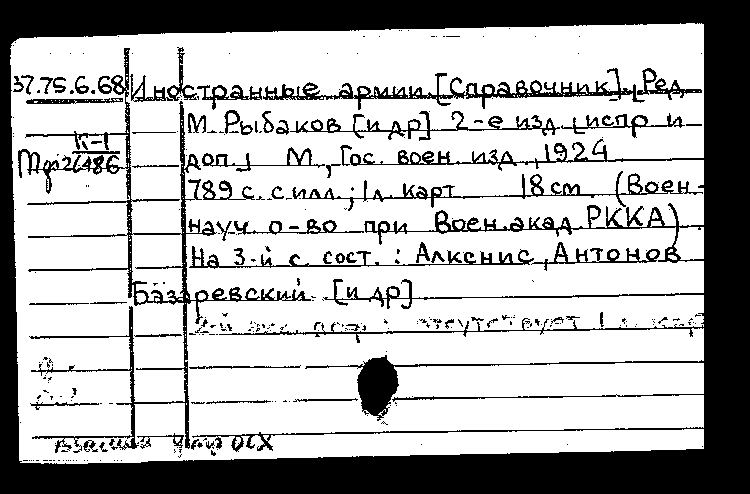 37.75.6.68 Иностранные армии [Справочник]. Ред
М. Рыбаков [и др] 2-е изд [испр и
К-1
доп.] М., Гос. воен. изд, 1924
26486
789 с. с илл.; 1 л. карт 18 см (Воен-
науч. о-во при Воен. акад. РККА)
На 3-й с. сост. : Алкснис, Антонов
Базаревский [и др]
2-й экз. деф : отсутствует 1 л. кар